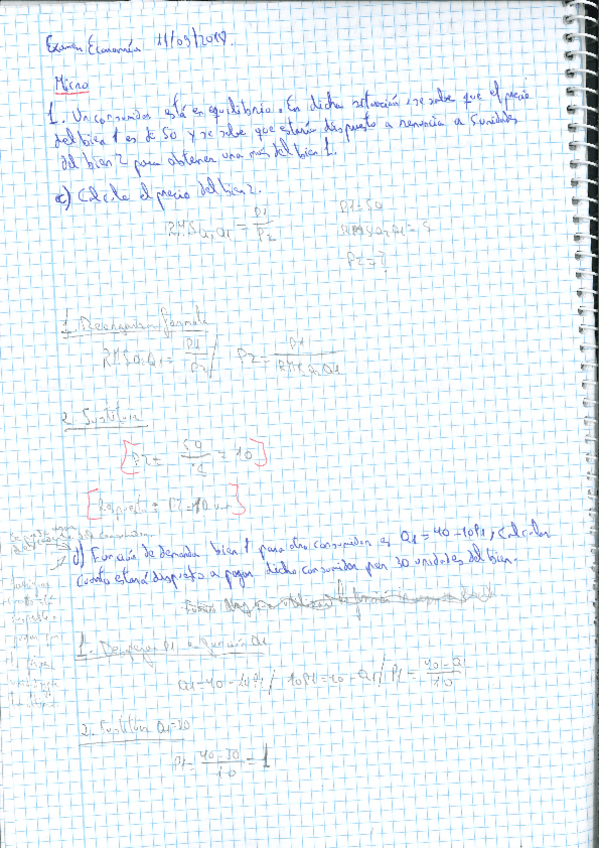 Examen Economía 11/03/2019.
Micro
1. Un consumidor está en equilibrio. En dicha situación, se sabe que el precio
del bien 1 es de 50 y se sabe que estaría dispuesto a renunciar a 5 unidades
del bien 2 para obtener una más del bien 1.
c) Calcula el precio del bien 2.
RMSQ2,Q1 = P1/P2
P1=50
RMSQ2,Q1=5
P2=?
1. Despejar fórmula
RMSQ2,Q1 = P1/P2 / P2 = P1/RMSQ2,Q1
2. Sustituir
[P2 = 50/5 = 10]
[Respuesta: P2=10 um]
d) Función de demanda bien 1 para otro consumidor es Q1 = 40-10P1, Calcular
cuánto estará dispuesto a pagar dicho consumidor por 30 unidades del bien.
1. Despejar P1 función Q1
Q1=40-10P1 / 10P1=40-Q1 / P1 = 40-Q1/10
2. Sustituir Q1=30
P1 = 40-30/10 = 1